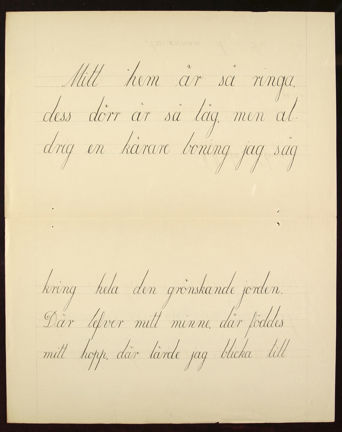 Mitt hem är så ringa,
dess dörr är så låg, men al-
dreg en kärare boning jag såg
kring hela den grönskande jorden.
Där lefver mitt minne, där föddes
mitt hopp, där lärde jag blicka till